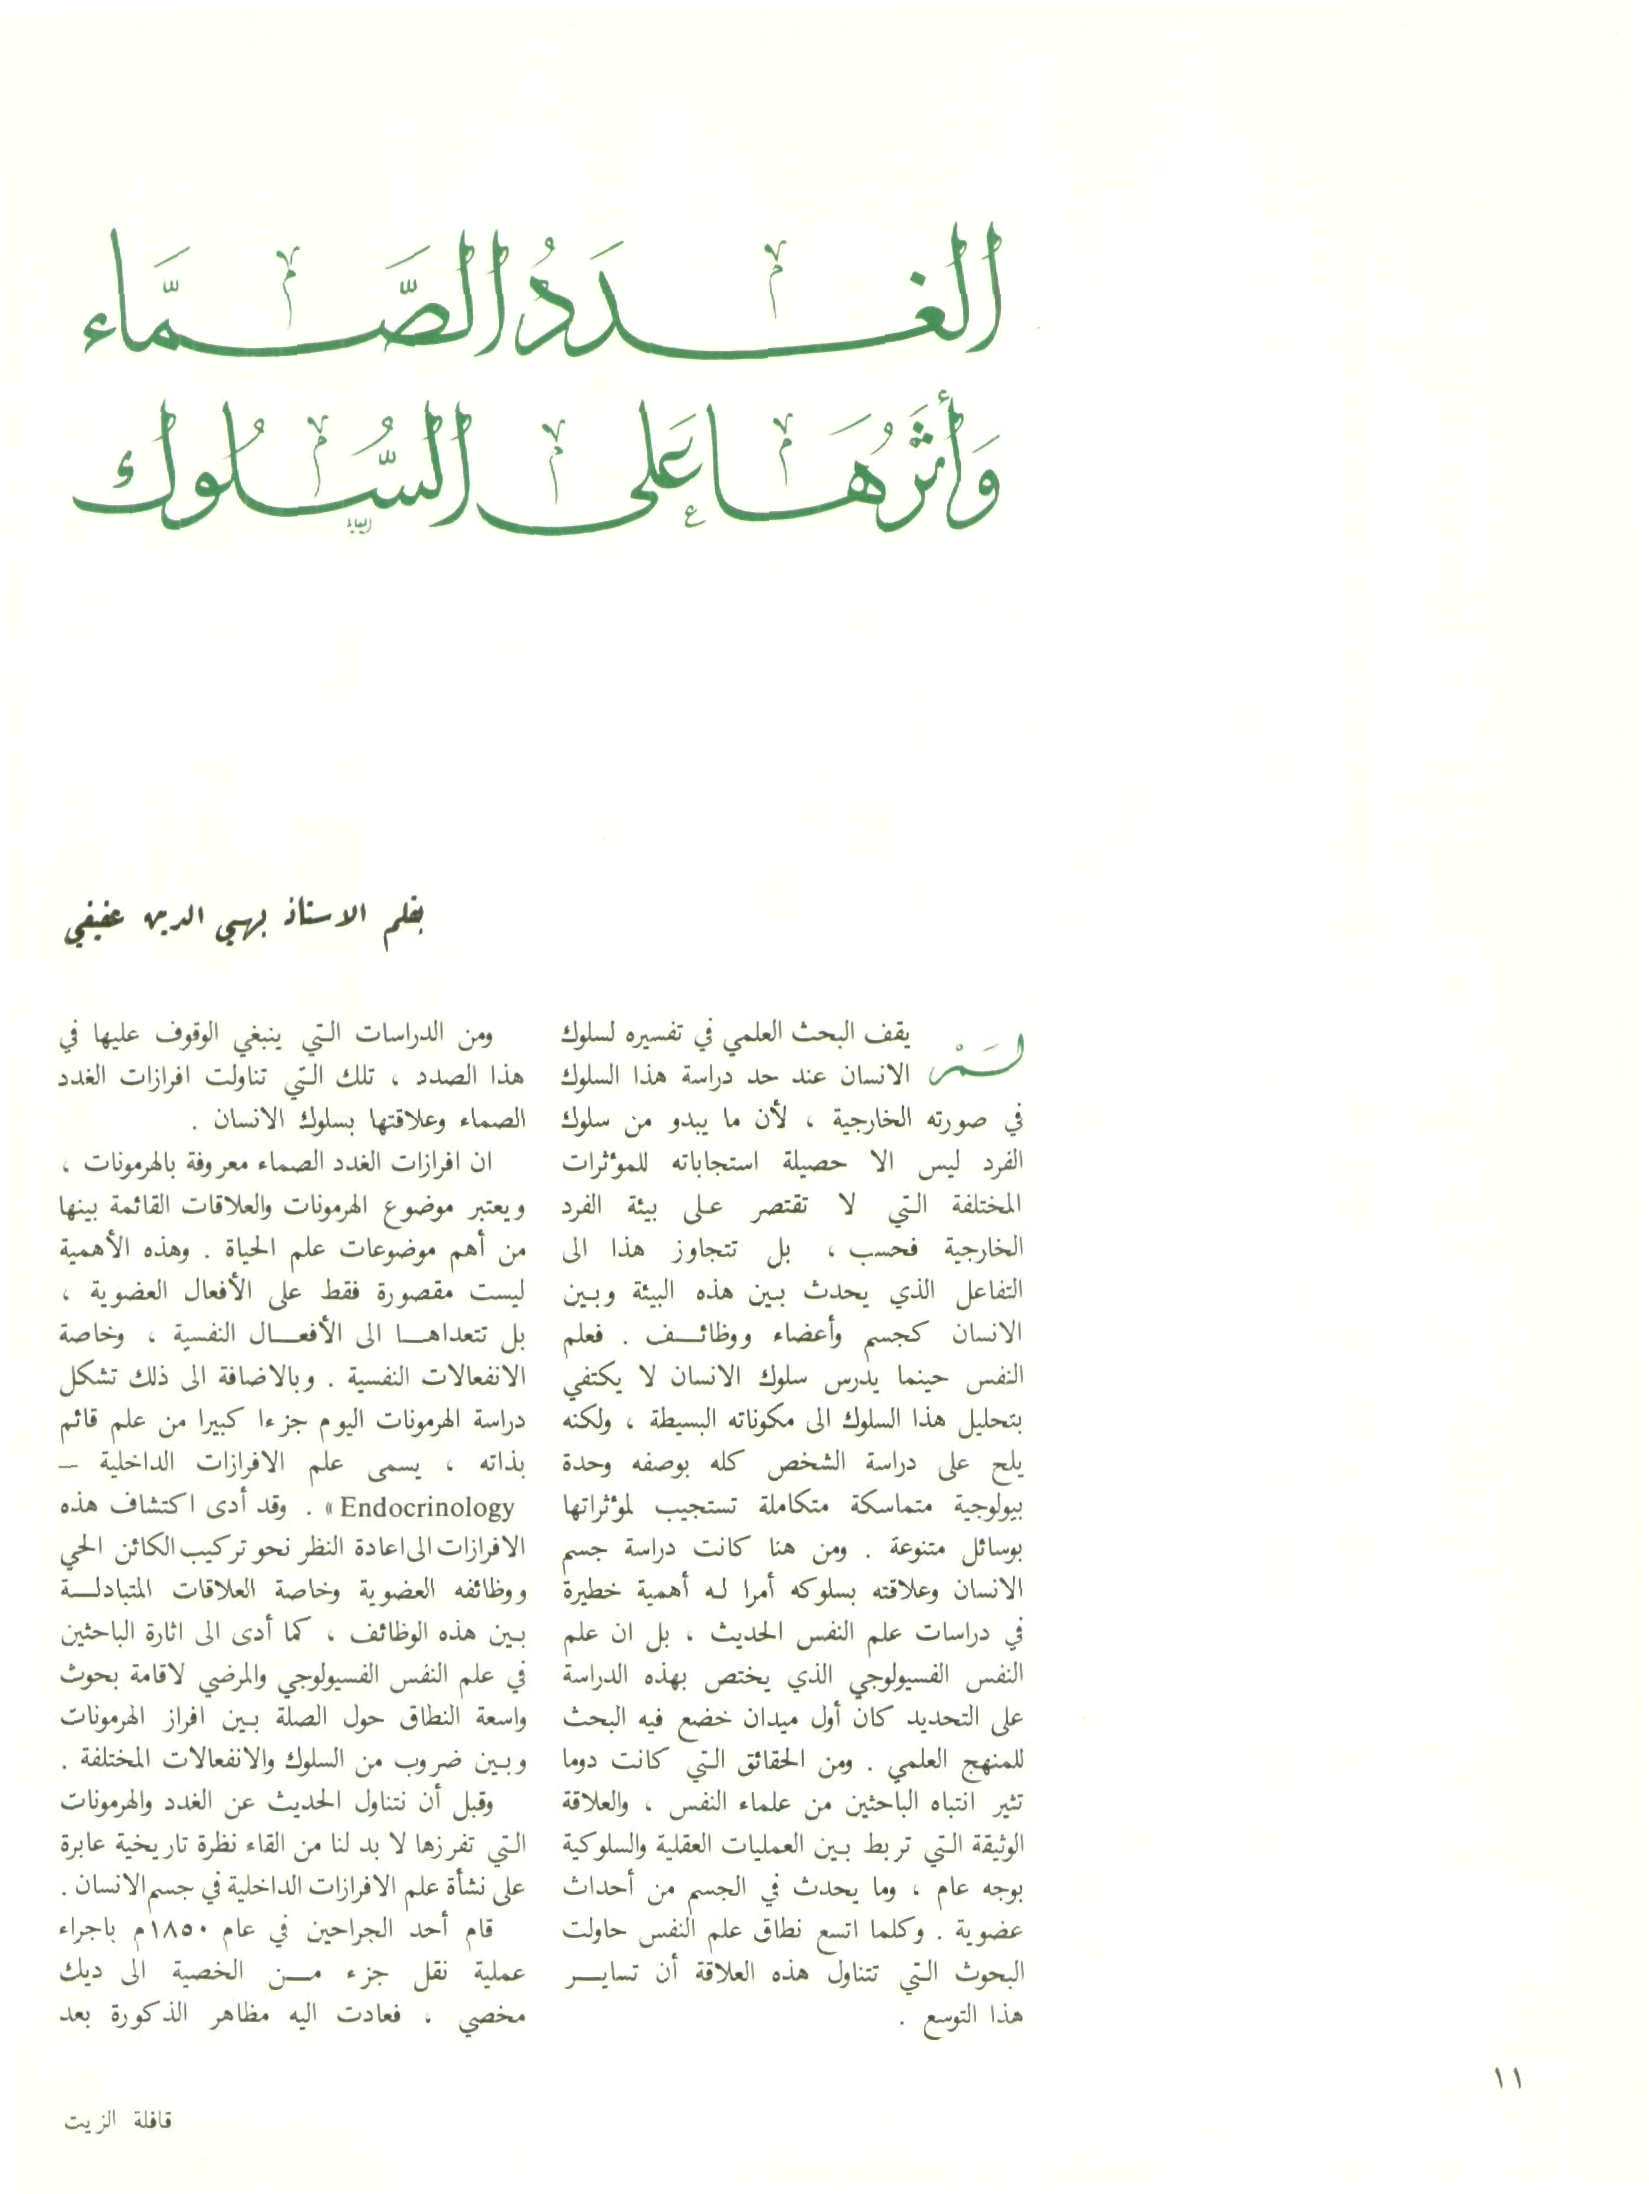 الغدد الصماء
وأثرها على السلوك
بقلم الاستاذ بهي الدين عفيفي
لم يقف البحث العلمي في تفسيره لسلوك
الانسان عند حد دراسة هذا السلوك
في صورته الخارجية ، لأن ما يبدو من سلوك
الفرد ليس الا حصيلة استجاباته للموٴثرات
المختلفة التي لا تقتصر على بيئة الفرد
الخارجية فحسب ، بل تتجاوز هذا الى
التفاعل الذي يحدث بين هذه البيئة وبين
الانسان كجسم وأعضاء ووظائف . فعلم
النفس حينما يدرس سلوك الانسان لا يكتفي
بتحليل هذا السلوك الى مكوناته البسيطة ، ولكنه
يلح على دراسة الشخص كله بوصفه وحدة
بيولوجية متماسكة متكاملة تستجيب لموٴثراتها
بوسائل متنوعة . ومن هنا كانت دراسة جسم
الانسان وعلاقته بسلوكه أمرا له أهمية خطيرة
في دراسات علم النفس الحديث ، بل ان علم
النفس الفسيولوجي الذي يختص بهذه الدراسة
على التحديد كان أول ميدان خضع فيه البحث
للمنهج العلمي . ومن الحقائق التي كانت دوما
تثير انتباه الباحثين من علماء النفس ، والعلاقة
الوثيقة التي تربط بين العمليات العقلية والسلوكية
بوجه عام ، وما يحدث في الجسم من أحداث
عضوية . وكلما اتسع نطاق علم النفس حاولت
البحوث التي تتناول هذه العلاقة أن تساير
هذا التوسع .
ومن الدراسات التي ينبغي الوقوف عليها في
هذا الصدد ، تلك التي تناولت افرازات الغدد
الصماء وعلاقتها بسلوك الانسان .
ان افرازات الغدد الصماء معروفة بالهرمونات ،
ويعتبر موضوع الهرمونات والعلاقات القائمة بينها
من أهم موضوعات علم الحياة . وهذه الأهمية
ليست مقصورة فقط على الأفعال العضوية ،
بل تتعداها الى الأفعال النفسية ، وخاصة
الانفعالات النفسية . وبالاضافة الى ذلك تشكل
دراسة الهرمونات اليوم جزءا كبيرا من علم قائم
بذاته ، يسمى علم الافرازات الداخلية –
Endocrinology » . وقد أدى اكتشاف هذه
الافرازات الى اعادة النظر نحو تركيب الكائن الحي
ووظائفه العضوية وخاصة العلاقات المتبادلة
بين هذه الوظائف ، كما أدى الى اثارة الباحثين
في علم النفس الفسيولوجي والمرضي لاقامة بحوث
واسعة النطاق حول الصلة بين افراز الهرمونات
وبين ضروب من السلوك والانفعالات المختلفة .
وقبل أن نتناول الحديث عن الغدد والهرمونات
التي تفرزها لا بد لنا من القاء نظرة تاريخية عابرة
على نشأة علم الافرازات الداخلية في جسم الانسان .
قام أحد الجراحين في عام ١٨٥٠م باجراء
عملية نقل جزء من الخصية الى ديك
مخصي ، فعادت اليه مظاهر الذكورة بعد
١١
قافلة الزيت